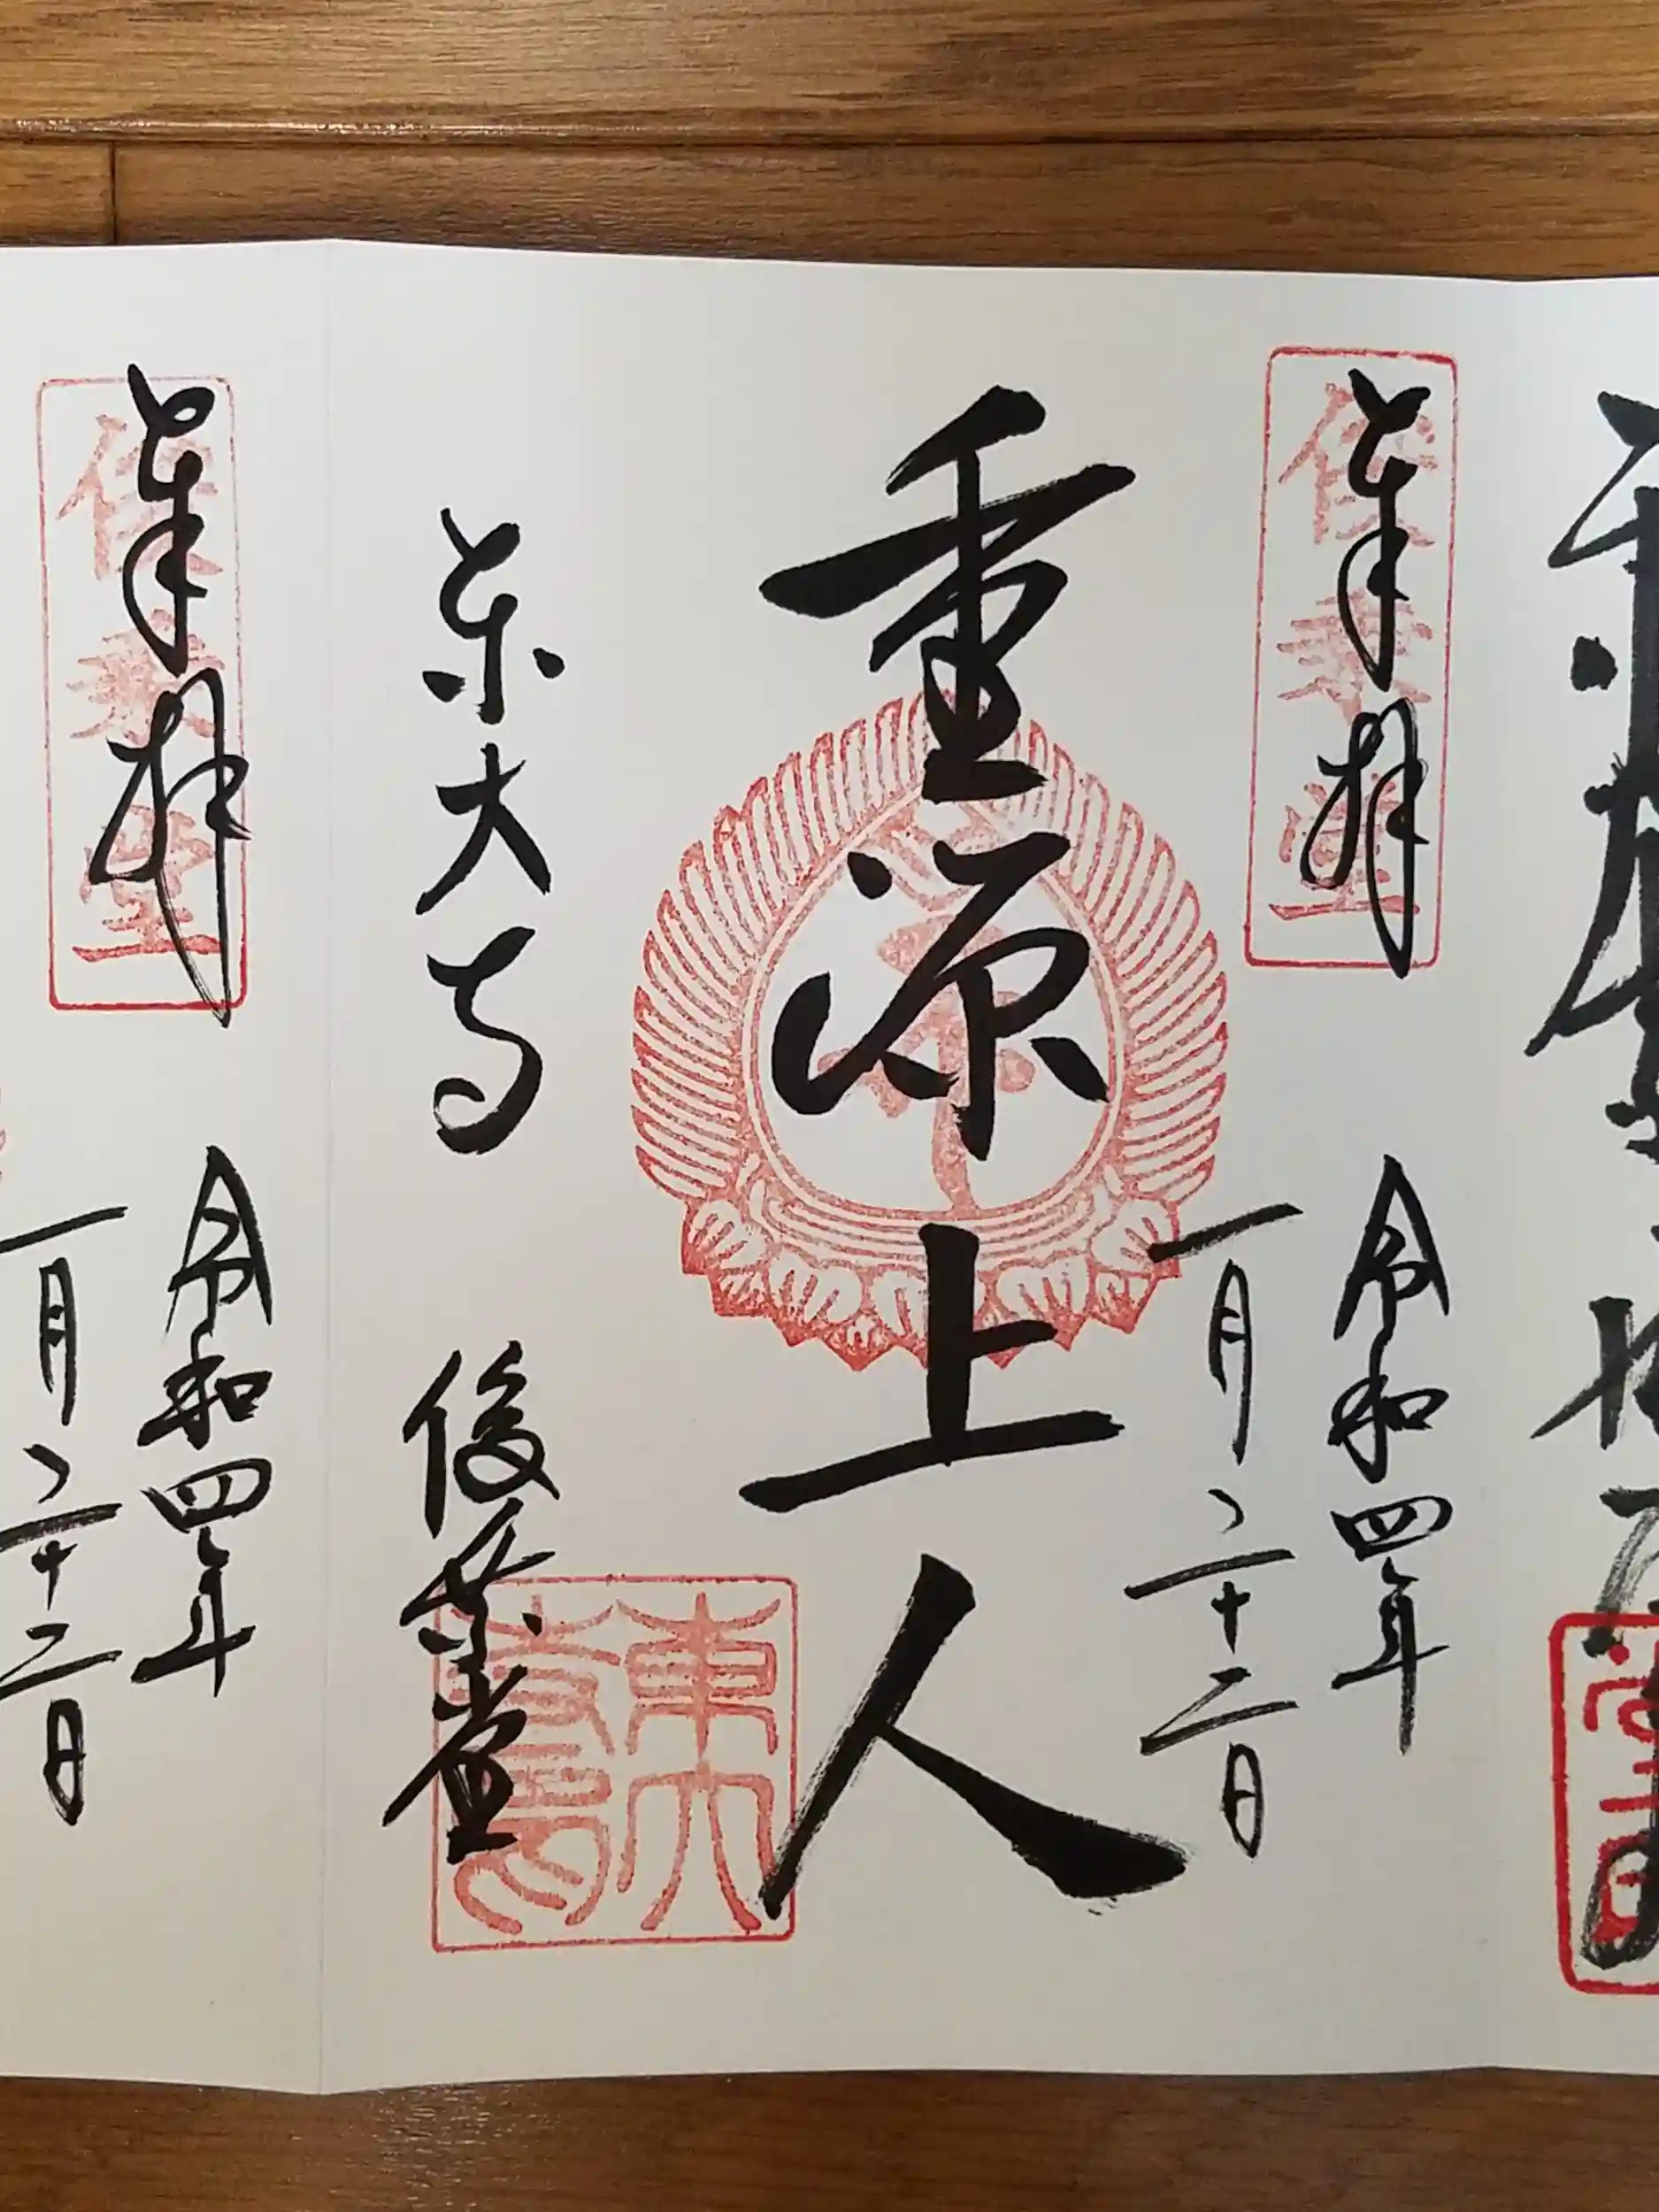 奉拝
俊乗堂
令和四年
一月二十二日
重源上人
東大寺
俊乗堂
東大
奉拝
俊乗堂
令和四年
一月二十二日